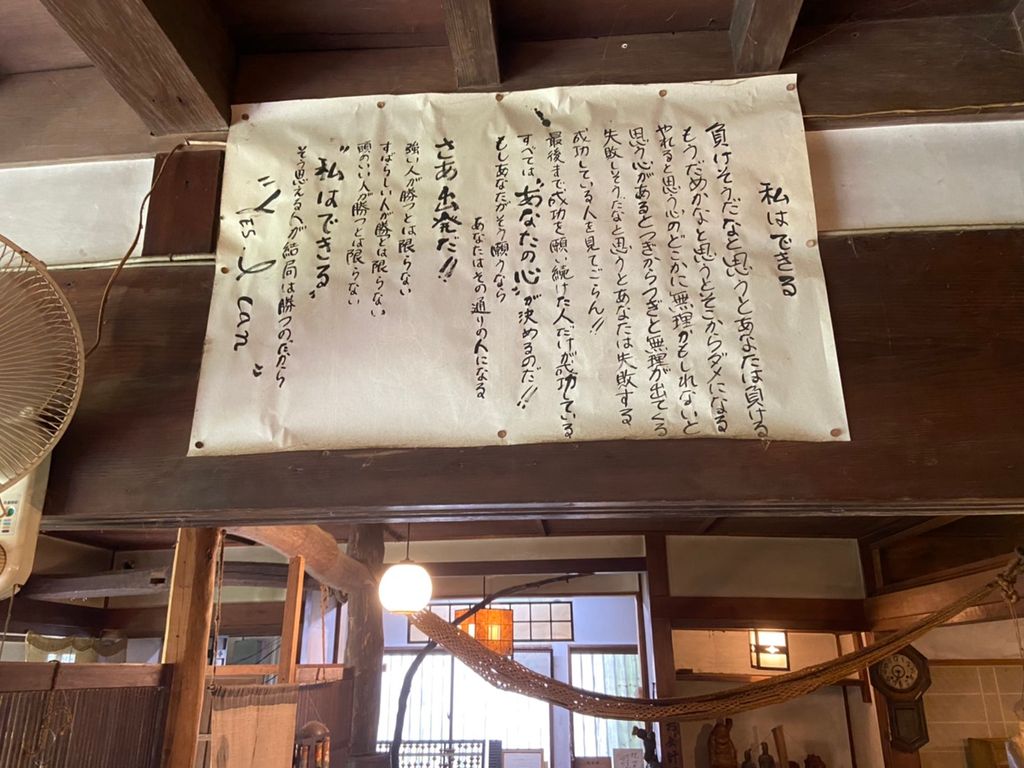 私はできる
負けそうだなと思うとあなたは負ける
もうだめかなと思うとそこからダメになる
やれると思う心のどこかに無理かもしれないと
思う心があるとつぎからつぎと無理が出てくる
失敗しそうだなと思うとあなたは失敗する
成功している人を見てごらん!!
最後まで成功を願い続けた人だけが成功している
すべては、"あなたの心"が決めるのだ!!
もしあなたがそう願うなら
あなたはその通りの人になる
さあ出発だ!!
強い人が勝つとは限らない
すばらしい人が勝とは限らない
頭のいい人が勝つとは限らない
"私はできる"
そう思える人が結局は勝つのだから
"YES. I can"